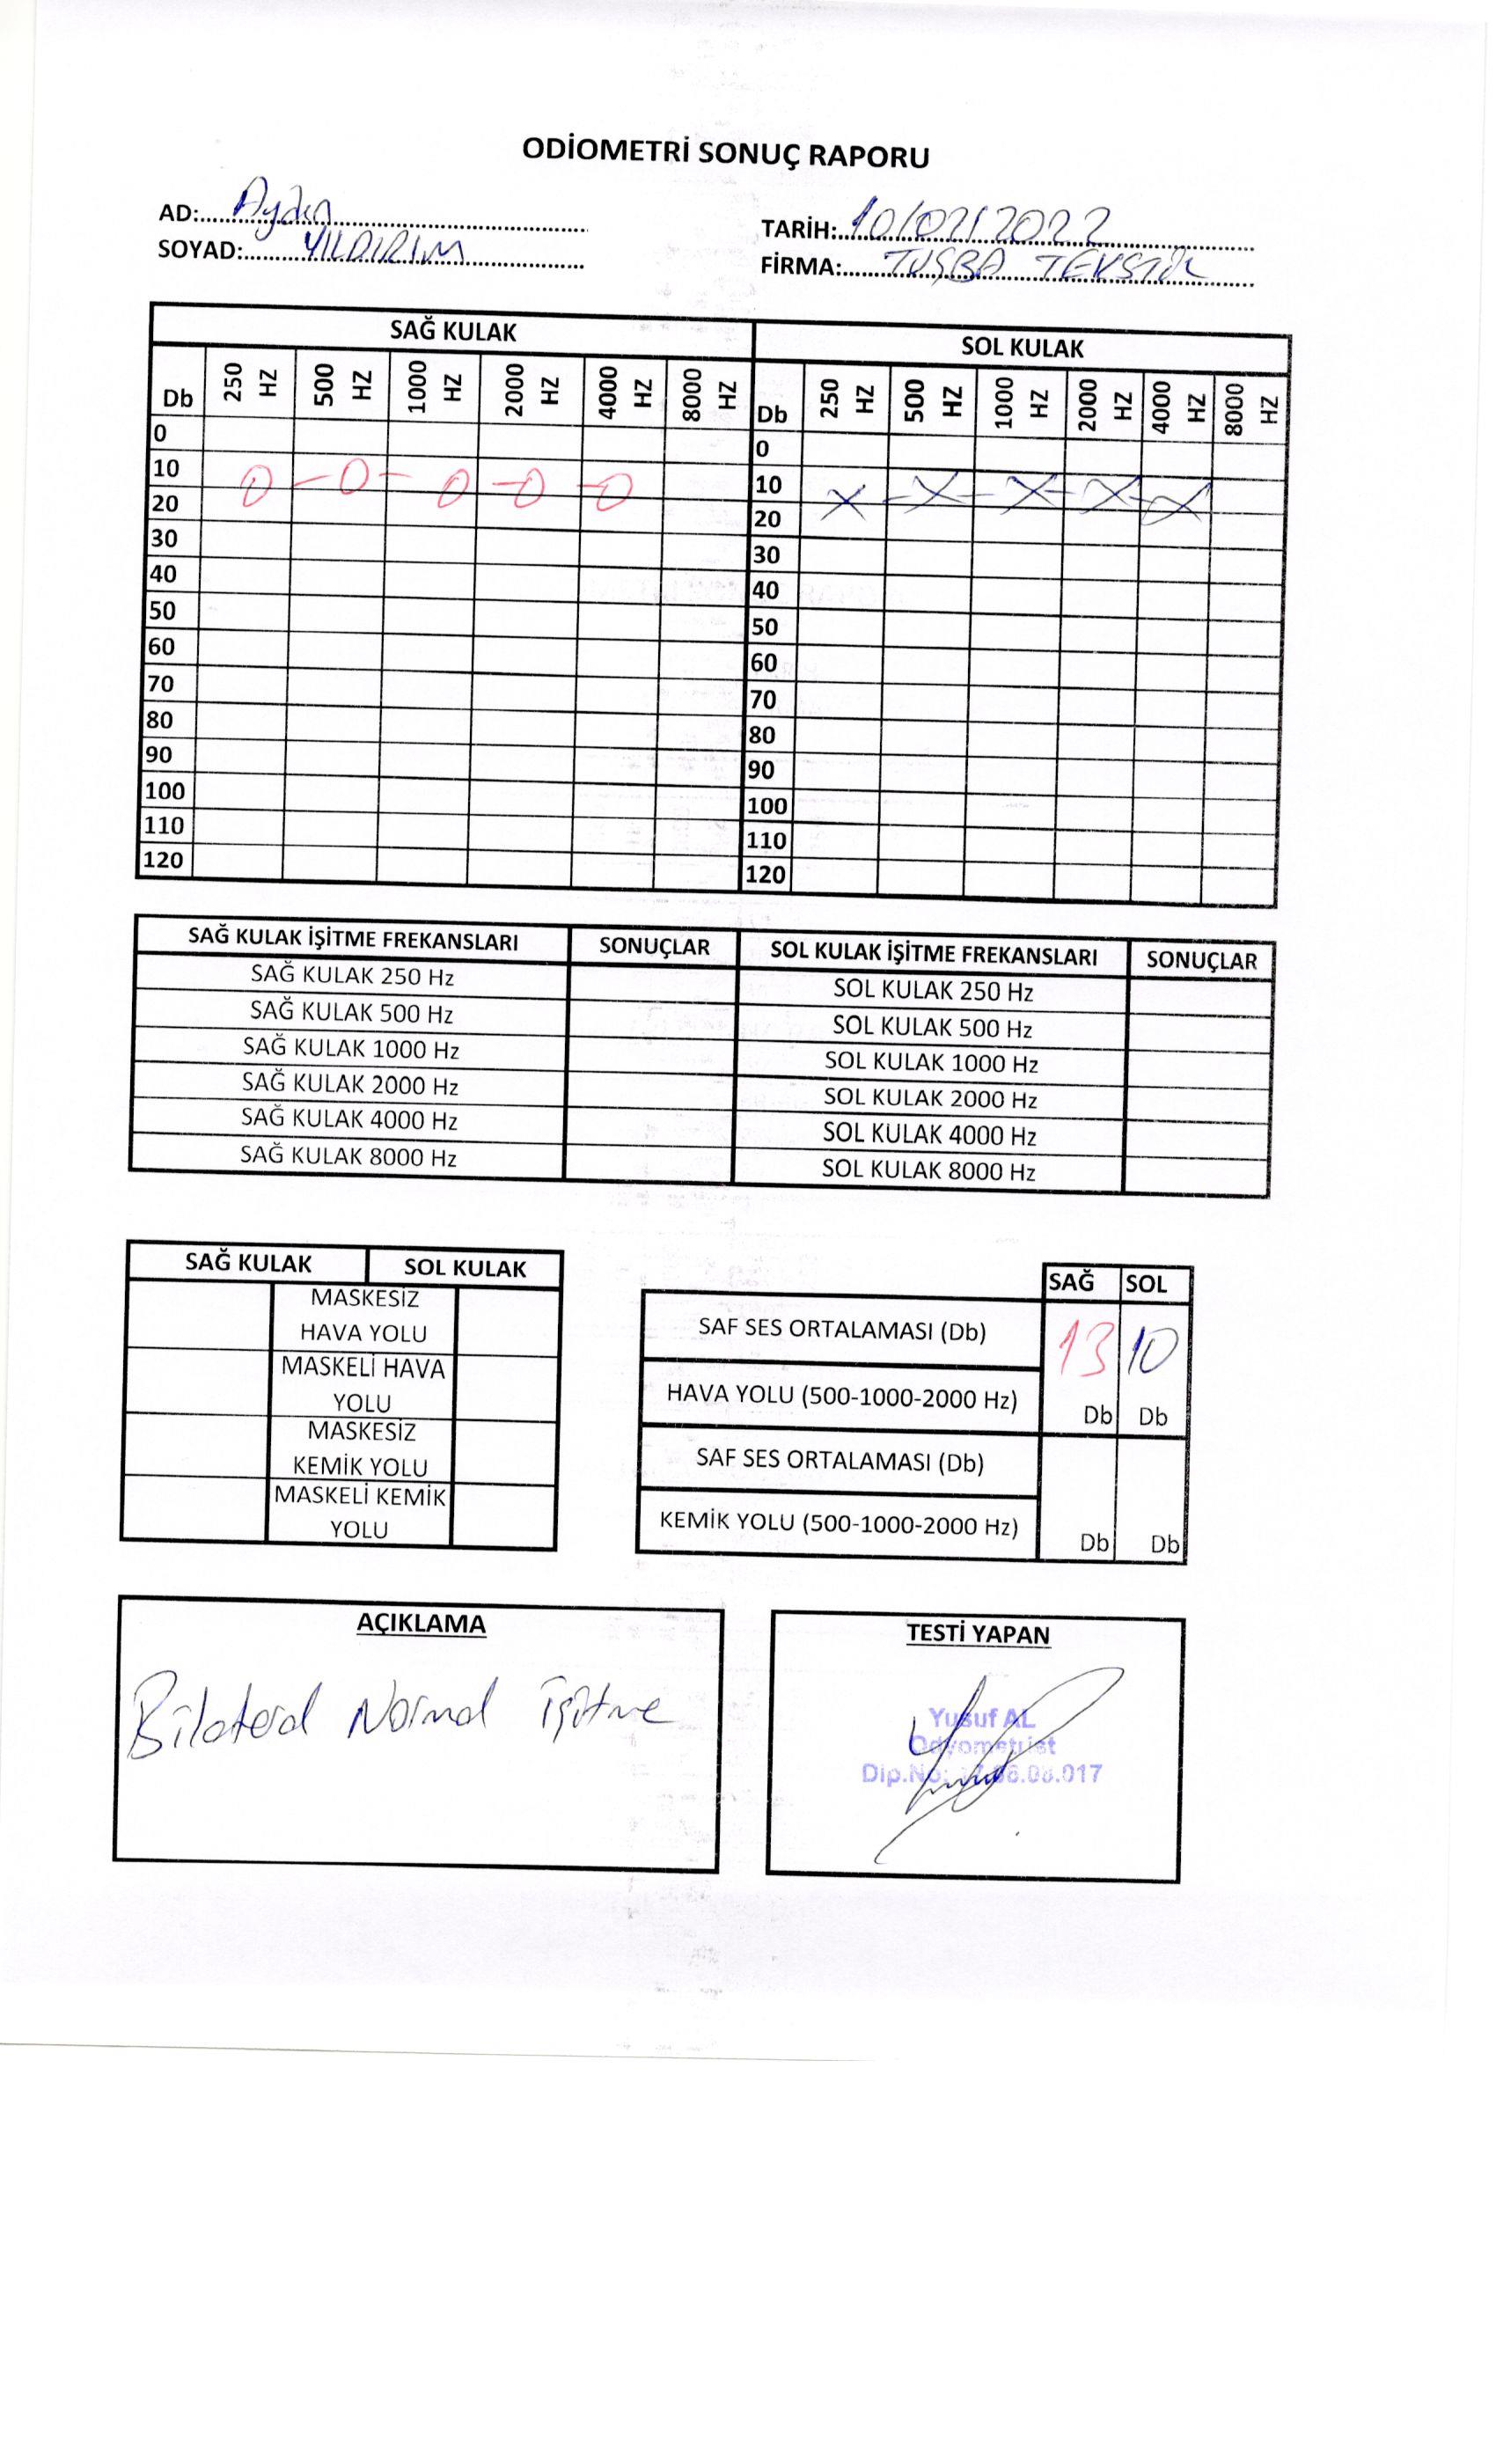 ODİOMETRİ SONUÇ RAPORU
AD: Aydın
SOYAD: YILDIRIM
TARİH: 10/02/2022
FİRMA: TUŞBA TEKSTİL
SAĞ KULAK SOL KULAK
Db 250 HZ 500 HZ 1000 HZ 2000 HZ 4000 HZ 8000 HZ Db 250 HZ 500 HZ 1000 HZ 2000 HZ 4000 HZ 8000 HZ
0 0
10 10
20 20
30 30
40 40
50 50
60 60
70 70
80 80
90 90
100 100
110 110
120 120
SAĞ KULAK İŞİTME FREKANSLARI SONUÇLAR SOL KULAK İŞİTME FREKANSLARI SONUÇLAR
SAĞ KULAK 250 Hz SOL KULAK 250 Hz
SAĞ KULAK 500 Hz SOL KULAK 500 Hz
SAĞ KULAK 1000 Hz SOL KULAK 1000 Hz
SAĞ KULAK 2000 Hz SOL KULAK 2000 Hz
SAĞ KULAK 4000 Hz SOL KULAK 4000 Hz
SAĞ KULAK 8000 Hz SOL KULAK 8000 Hz
SAĞ KULAK SOL KULAK
MASKESİZ
HAVA YOLU
MASKELİ HAVA
YOLU
MASKESİZ
KEMİK YOLU
MASKELİ KEMİK
YOLU
SAĞ SOL
SAF SES ORTALAMASI (Db) 13 10
HAVA YOLU (500-1000-2000 Hz) Db Db
SAF SES ORTALAMASI (Db)
KEMİK YOLU (500-1000-2000 Hz) Db Db
AÇIKLAMA
Bilateral Normal işitme
TESTİ YAPAN
Yusuf AL
Odyometrist
Dip.No: